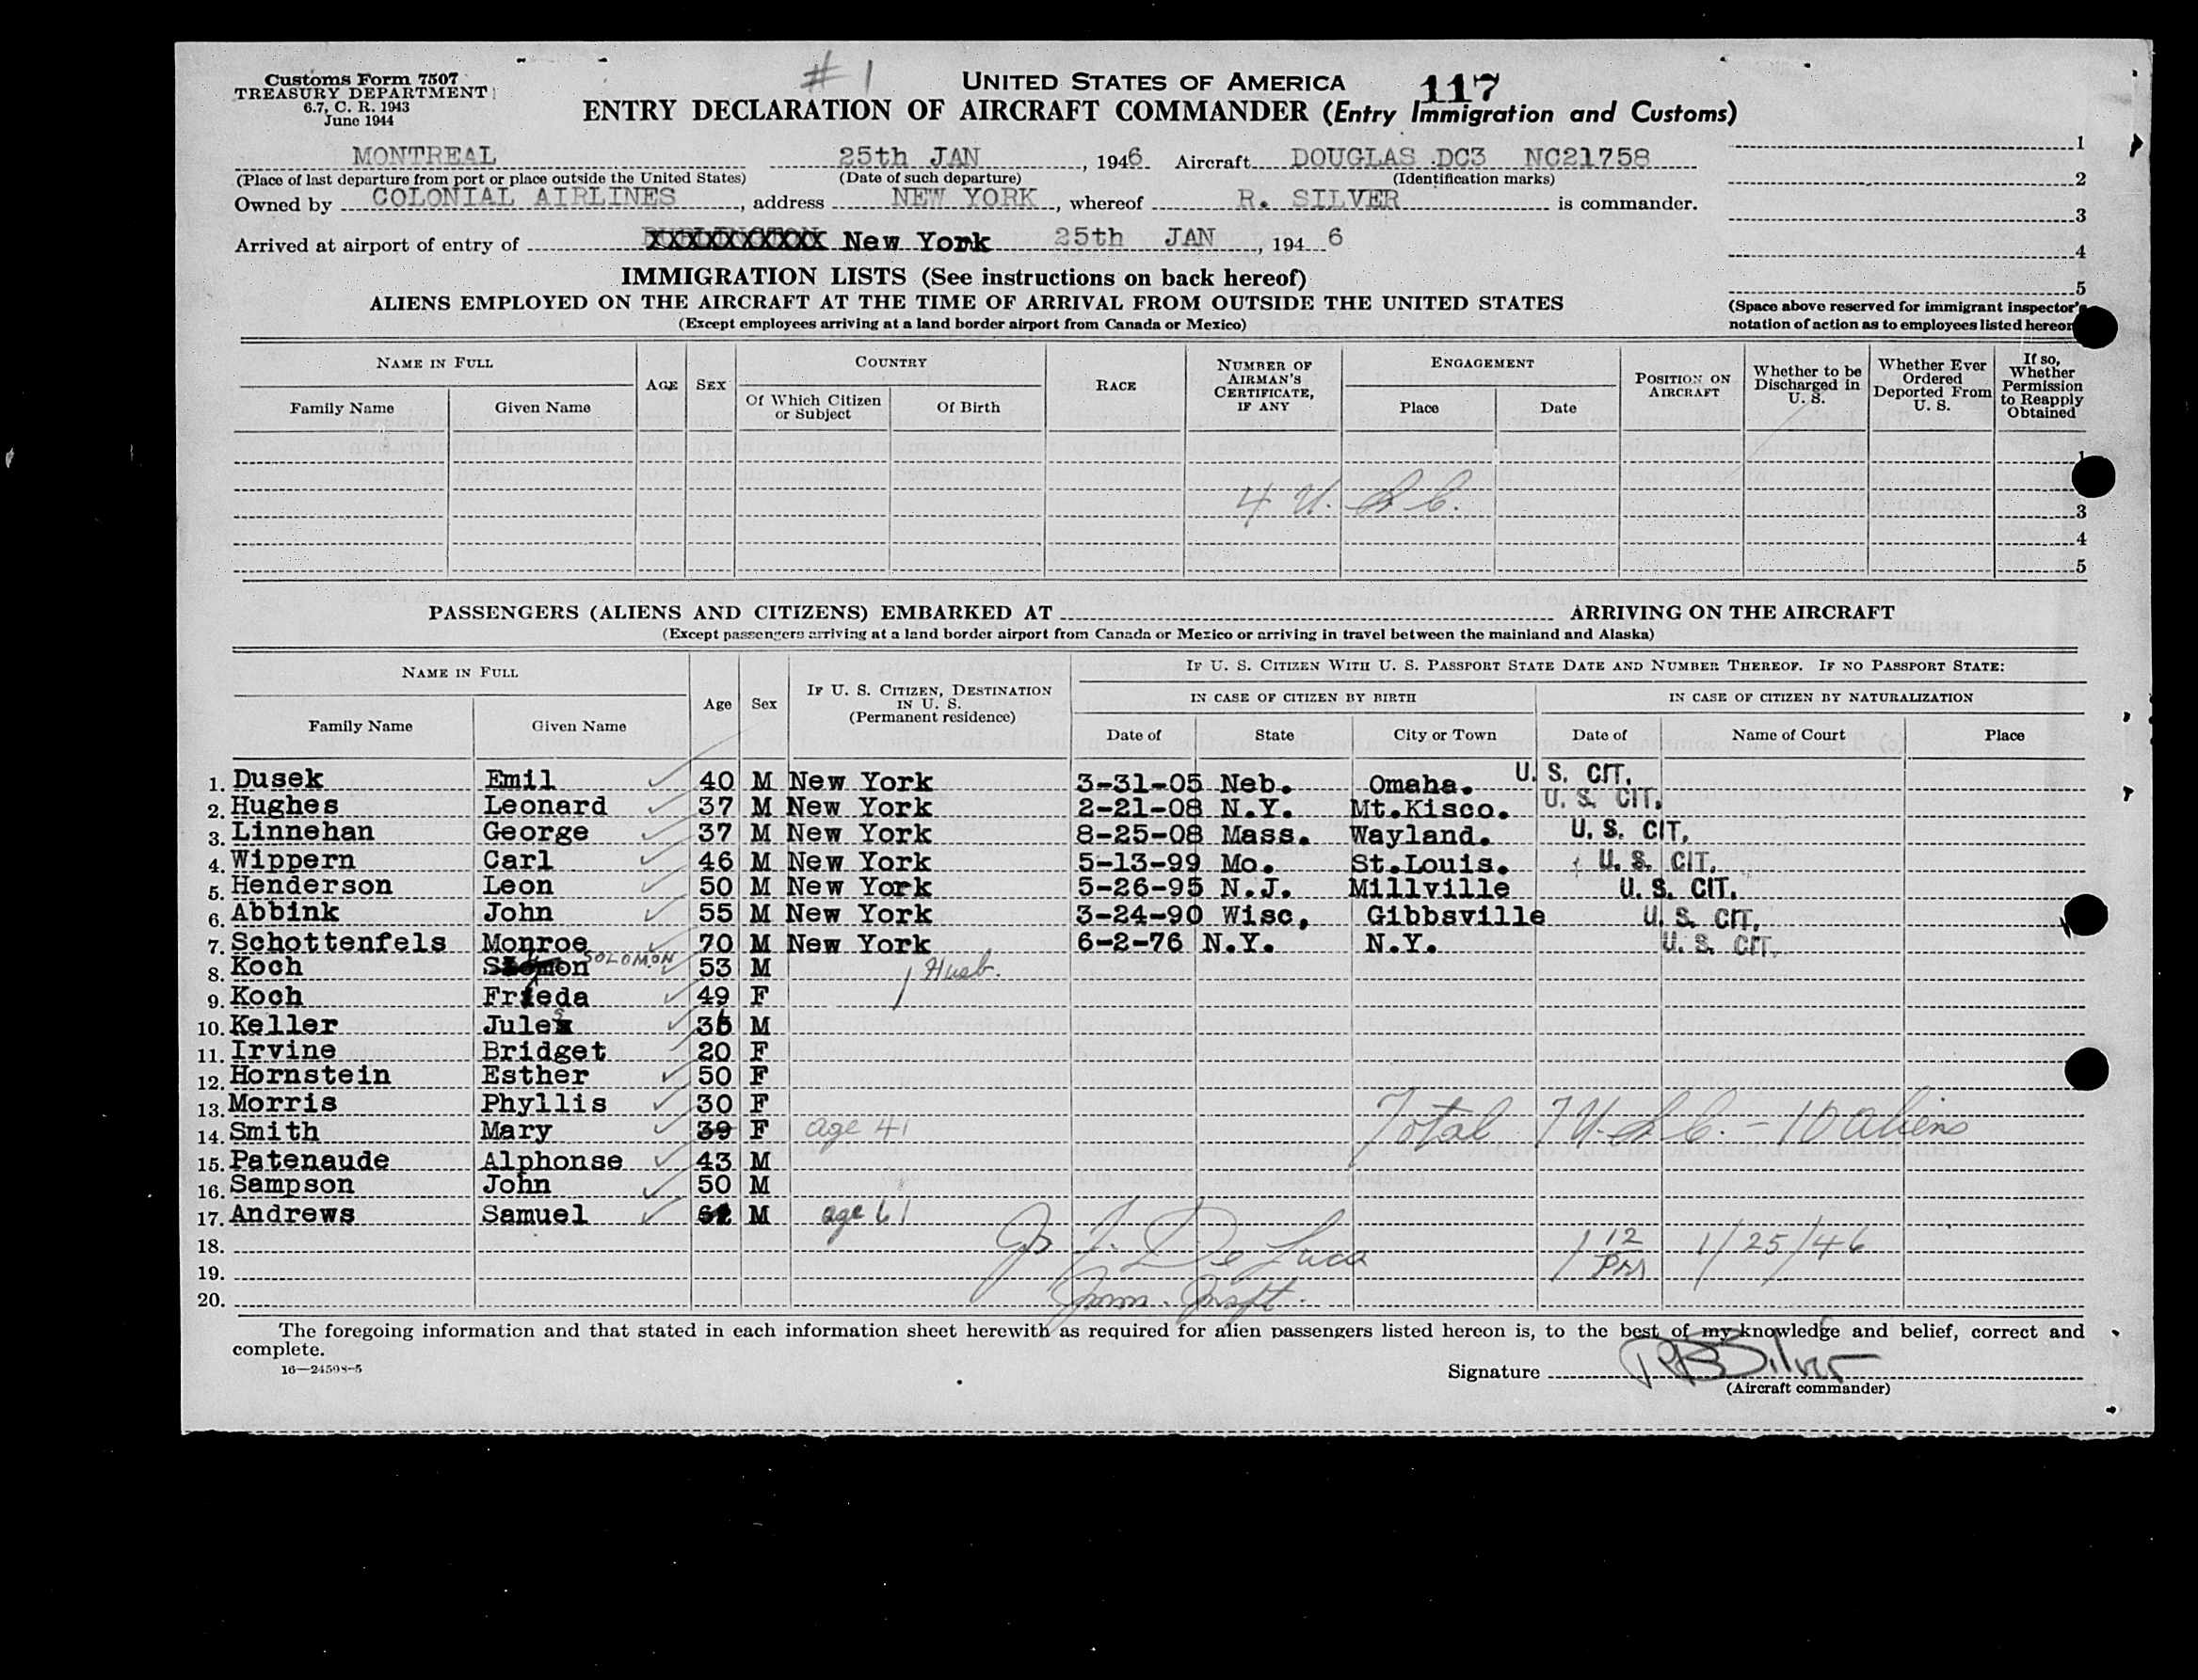 Customs Form 7507
TREASURY DEPARTMENT
6.7, C. R. 1943
June 1944
# 1
UNITED STATES OF AMERICA
117
ENTRY DECLARATION OF AIRCRAFT COMMANDER (Entry Immigration and Customs)
MONTREAL 25th JAN, 1946 Aircraft DOUGLAS DC3 NC21758
(Place of last departure from port or place outside the United States) (Date of such departure) (Identification marks)
Owned by COLONIAL AIRLINES, address NEW YORK, whereof R. SILVER is commander.
Arrived at airport of entry of XXXXXXXXXX New York 25th JAN, 1946
1
2
3
4
5
(Space above reserved for immigrant inspector's
notation of action as to employees listed hereon
IMMIGRATION LISTS (See instructions on back hereof)
ALIENS EMPLOYED ON THE AIRCRAFT AT THE TIME OF ARRIVAL FROM OUTSIDE THE UNITED STATES
(Except employees arriving at a land border airport from Canada or Mexico)
NAME IN FULL
Family Name Given Name
AGE SEX
COUNTRY
Of Which Citizen or Subject Of Birth
RACE
NUMBER OF AIRMAN'S CERTIFICATE, IF ANY
ENGAGEMENT
Place Date
POSITION ON AIRCRAFT
Whether to be Discharged in U. S.
Whether Ever Ordered Deported From U. S.
If so, Whether Permission to Reapply Obtained
1
4 U. S. C.
3
4
5
PASSENGERS (ALIENS AND CITIZENS) EMBARKED AT ARRIVING ON THE AIRCRAFT
(Except passengers arriving at a land border airport from Canada or Mexico or arriving in travel between the mainland and Alaska)
NAME IN FULL
Family Name Given Name
Age Sex
IF U. S. CITIZEN, DESTINATION IN U. S. (Permanent residence)
IF U. S. CITIZEN WITH U. S. PASSPORT STATE DATE AND NUMBER THEREOF. IF NO PASSPORT STATE:
IN CASE OF CITIZEN BY BIRTH IN CASE OF CITIZEN BY NATURALIZATION
Date of State City or Town Date of Name of Court Place
1. Dusek Emil 40 M New York 3-31-05 Neb. Omaha. U. S. CIT.
2. Hughes Leonard 37 M New York 2-21-08 N.Y. Mt.Kisco. U. S. CIT.
3. Linnehan George 37 M New York 8-25-08 Mass. Wayland. U. S. CIT.
4. Wippern Carl 46 M New York 5-13-99 Mo. St.Louis. U. S. CIT.
5. Henderson Leon 50 M New York 5-26-95 N.J. Millville U. S. CIT.
6. Abbink John 55 M New York 3-24-90 Wisc, Gibbsville U. S. CIT.
7. Schottenfels Monroe 70 M New York 6-2-76 N.Y. N.Y. U. S. CIT.
8. Koch SOLOMON 53 M Husb.
9. Koch Frieda 49 F
10. Keller Jules 36 M
11. Irvine Bridget 20 F
12. Hornstein Esther 50 F
13. Morris Phyllis 30 F
14. Smith Mary 39 F age 41 Total 7 U. S. C. - 10 aliens
15. Patenaude Alphonse 43 M
16. Sampson John 50 M
17. Andrews Samuel M age 61
18. De Luca 1 12 PM 1/25/46
19.
20. Imm. Inspt.
The foregoing information and that stated in each information sheet herewith as required for alien passengers listed hereon is, to the best of my knowledge and belief, correct and
complete.
16—24598-5
Signature R B Silver
(Aircraft commander)